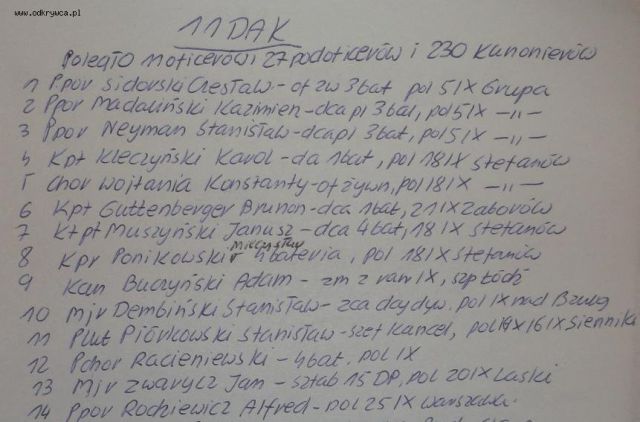 www.odkrywca.pl
11 DAK
Poległo 11 oficerów i 27 podoficerów i 230 kanonierów
1 Ppor Sidorski Czesław - of zw 3 bat pol 5 IX Grupa
2 Ppor Madaliński Kazimierz - dca pl 3 bat, pol 5 IX —"—
3 Ppor Neyman Stanisław - dca pl 3 bat, pol 5 IX —"—
4 Kpt Kleczyński Karol - dca 1 bat, pol 18 IX Stefanów
5 Chor Wojtania Konstanty - of żywn, pol 18 IX —"—
6 Kpt Guttenberger Brunon - dca 1 bat, 21 IX Zaborów
7 Ktpt Muszyński Janusz - dca 4 bat, 18 IX Stefanów
8 Kpr Ponikowski Mieczysław 4 bateria, pol 18 IX Stefanów
9 Kan Buczyński Adam - zm z ran IX, szp Łódź
10 Mjr Dembiński Stanisław - zca dcy dyw, pol IX nad Bzurą
11 Plut Piórkowski Stanisław - szef Kancel, pol 16 IX Siennika
12 Pchor Racieniewski - 4 bat, pol IX
13 Mjr Zwarycz Jan - sztab 15 DP, pol 20 IX Laski
14 Ppor Rodziewicz Alfred - pol 25 IX Warszawa